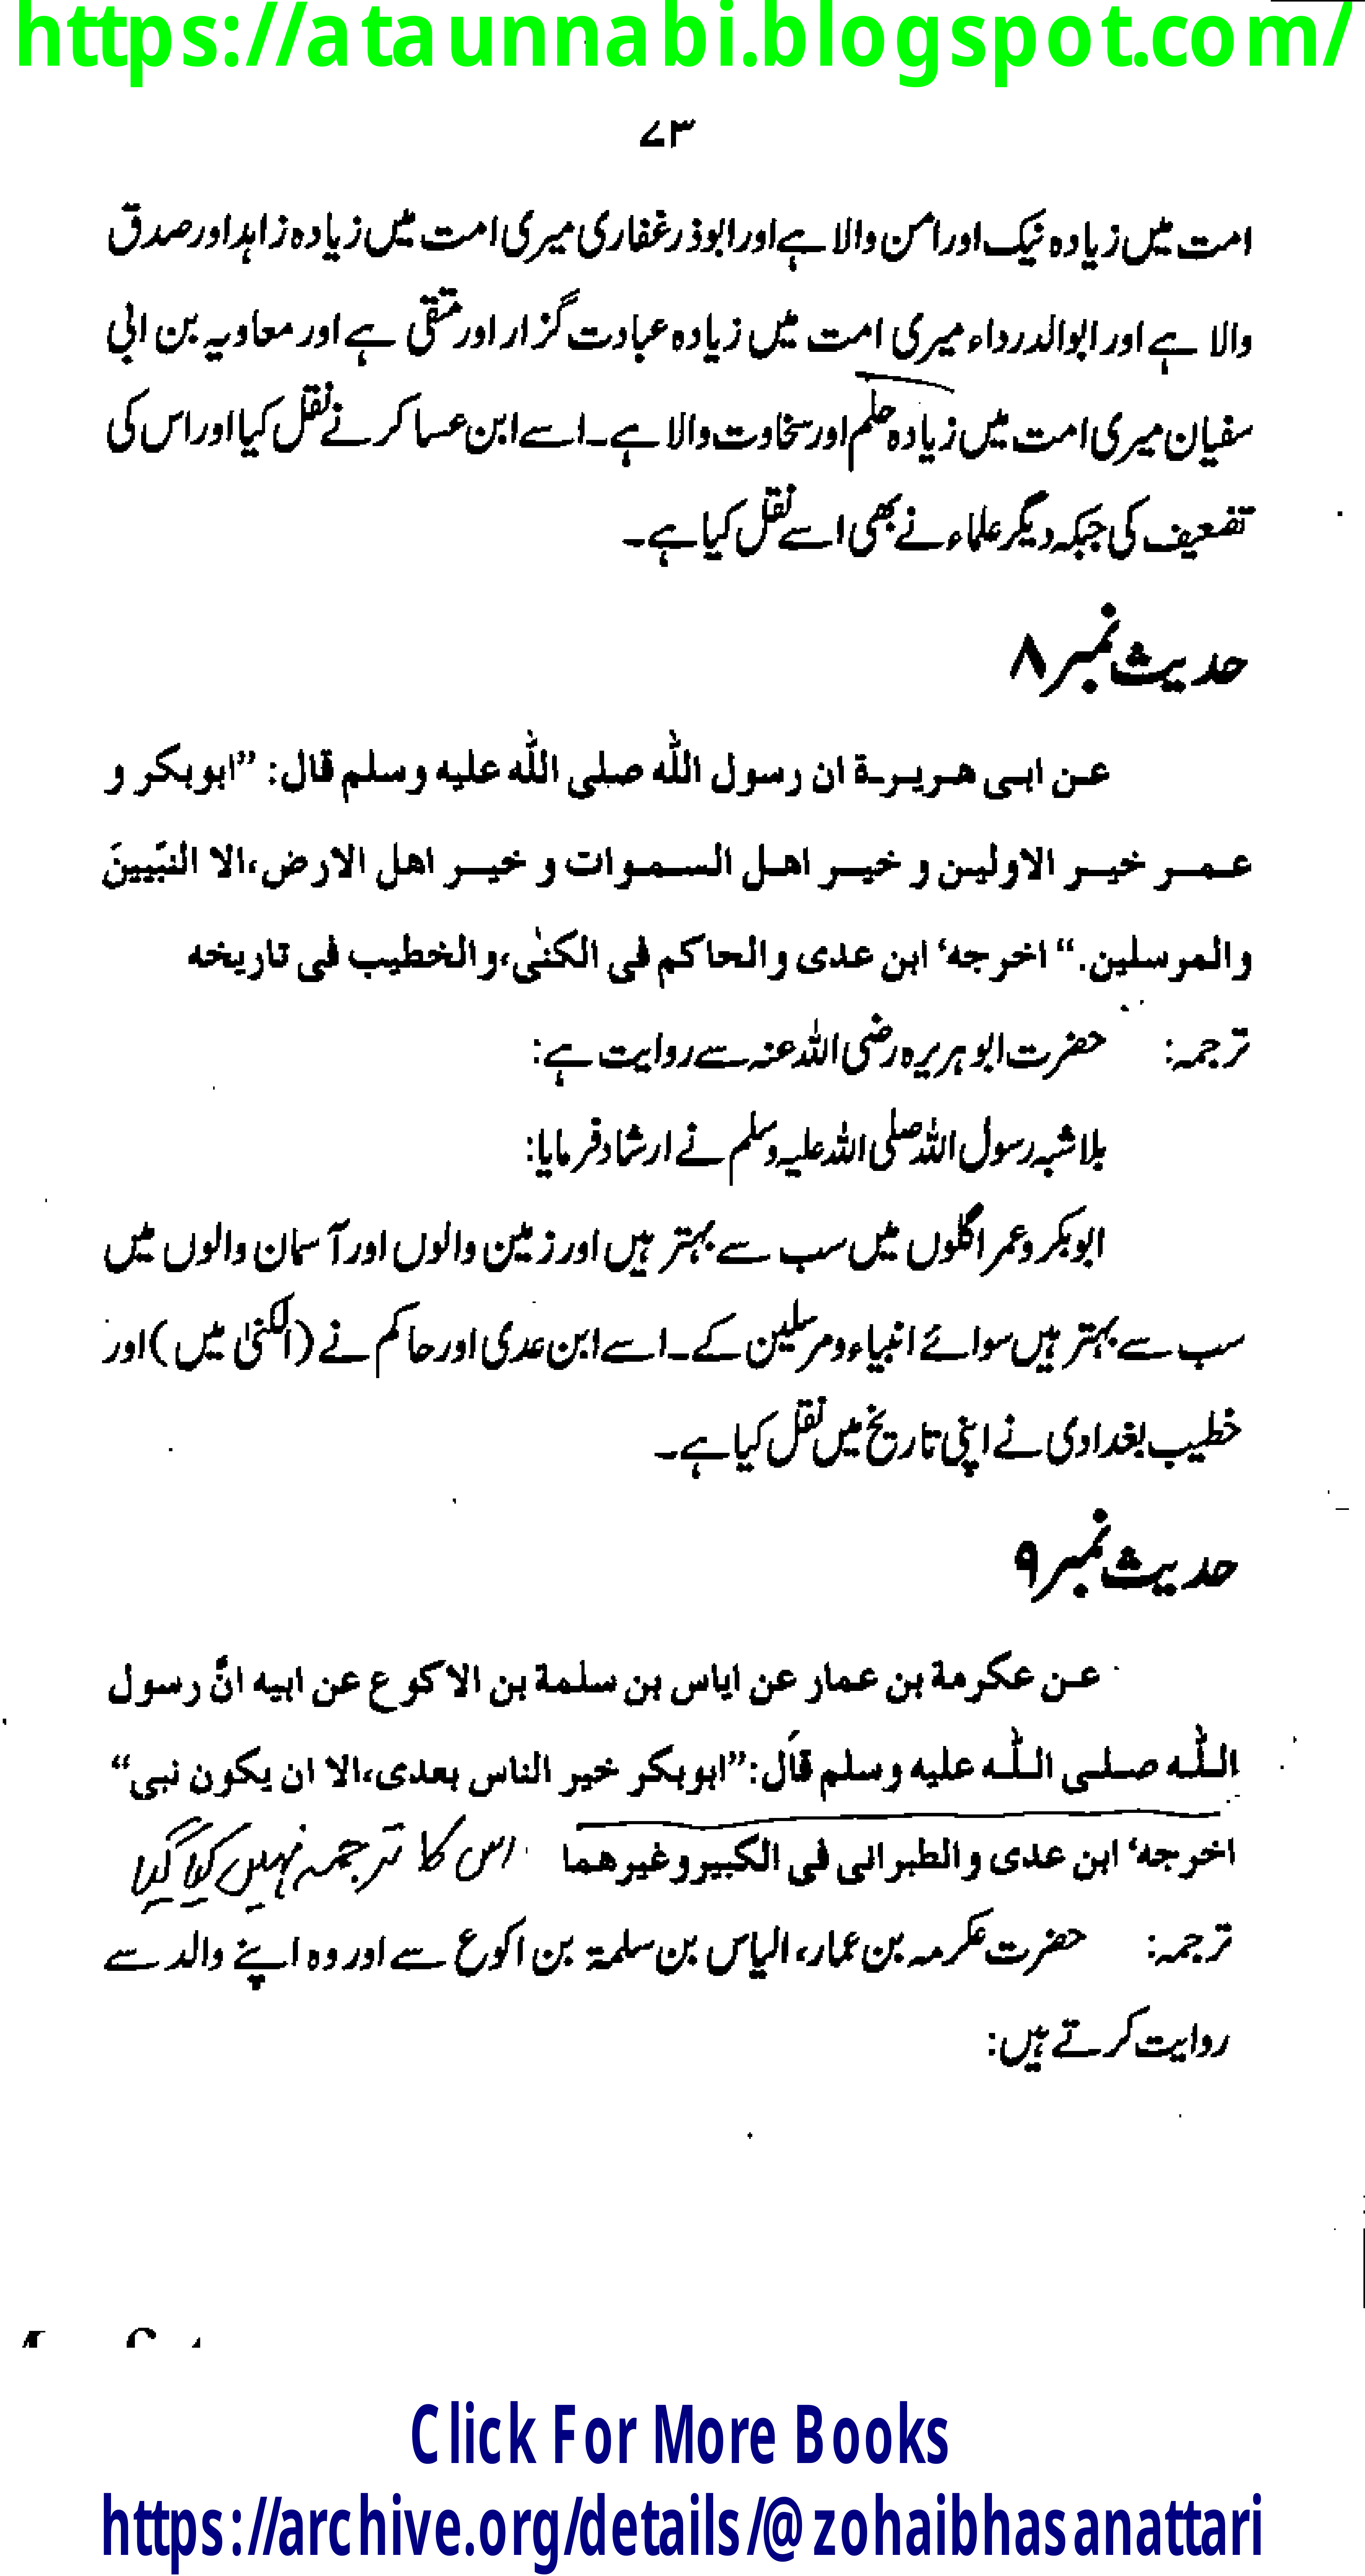 https://ataunnabi.blogspot.com/
۷۳
امت میں زیادہ نیک اور امن والا ہے اور ابوذر غفاری میری امت میں زیادہ زاہد اور صدق
والا ہے اور ابوالدرداء میری امت میں زیادہ عبادت گزار اور متقی ہے اور معاویہ بن ابی
سفیان میری امت میں زیادہ حلم اور سخاوت والا ہے۔ اسے ابن عساکر نے نقل کیا اور اس کی
تضعیف کی جبکہ دیگر علماء نے بھی اسے نقل کیا ہے۔
حدیث نمبر ۸
عن ابی هریرة ان رسول الله صلی الله علیه وسلم قال: ”ابوبکر و
عمر خیر الاولین و خیر اهل السموات و خیر اهل الارض، الا النبّیینَ
والمرسلین.“ اخرجه‘ ابن عدی والحاکم فی الکنٰی، والخطیب فی تاریخه
ترجمہ: حضرت ابو ہریرہ رضی اللہ عنہ سے روایت ہے:
بلاشبہ رسول اللہ صلی اللہ علیہ وسلم نے ارشاد فرمایا:
ابوبکر و عمر اگلوں میں سب سے بہتر ہیں اور زمین والوں اور آسمان والوں میں
سب سے بہتر ہیں سوائے انبیاء و مرسلین کے۔ اسے ابن عدی اور حاکم نے (الکنیٰ میں) اور
خطیب بغدادی نے اپنی تاریخ میں نقل کیا ہے۔
حدیث نمبر ۹
عن عکرمة بن عمار عن ایاس بن سلمة بن الاکوع عن ابیه انّ رسول
اللّٰه صلی اللّٰه علیه وسلم قاَل: ”ابوبکر خیر الناس بعدی، الا ان یکون نبی“
اخرجه‘ ابن عدی والطبرانی فی الکبیر وغیرهما اس کا ترجمہ نہیں کیا گیا
ترجمہ: حضرت عکرمہ بن عمار، الیاس بن سلمۃ بن اکوع سے اور وہ اپنے والد سے
روایت کرتے ہیں:
Click For More Books
https://archive.org/details/@zohaibhasanattari